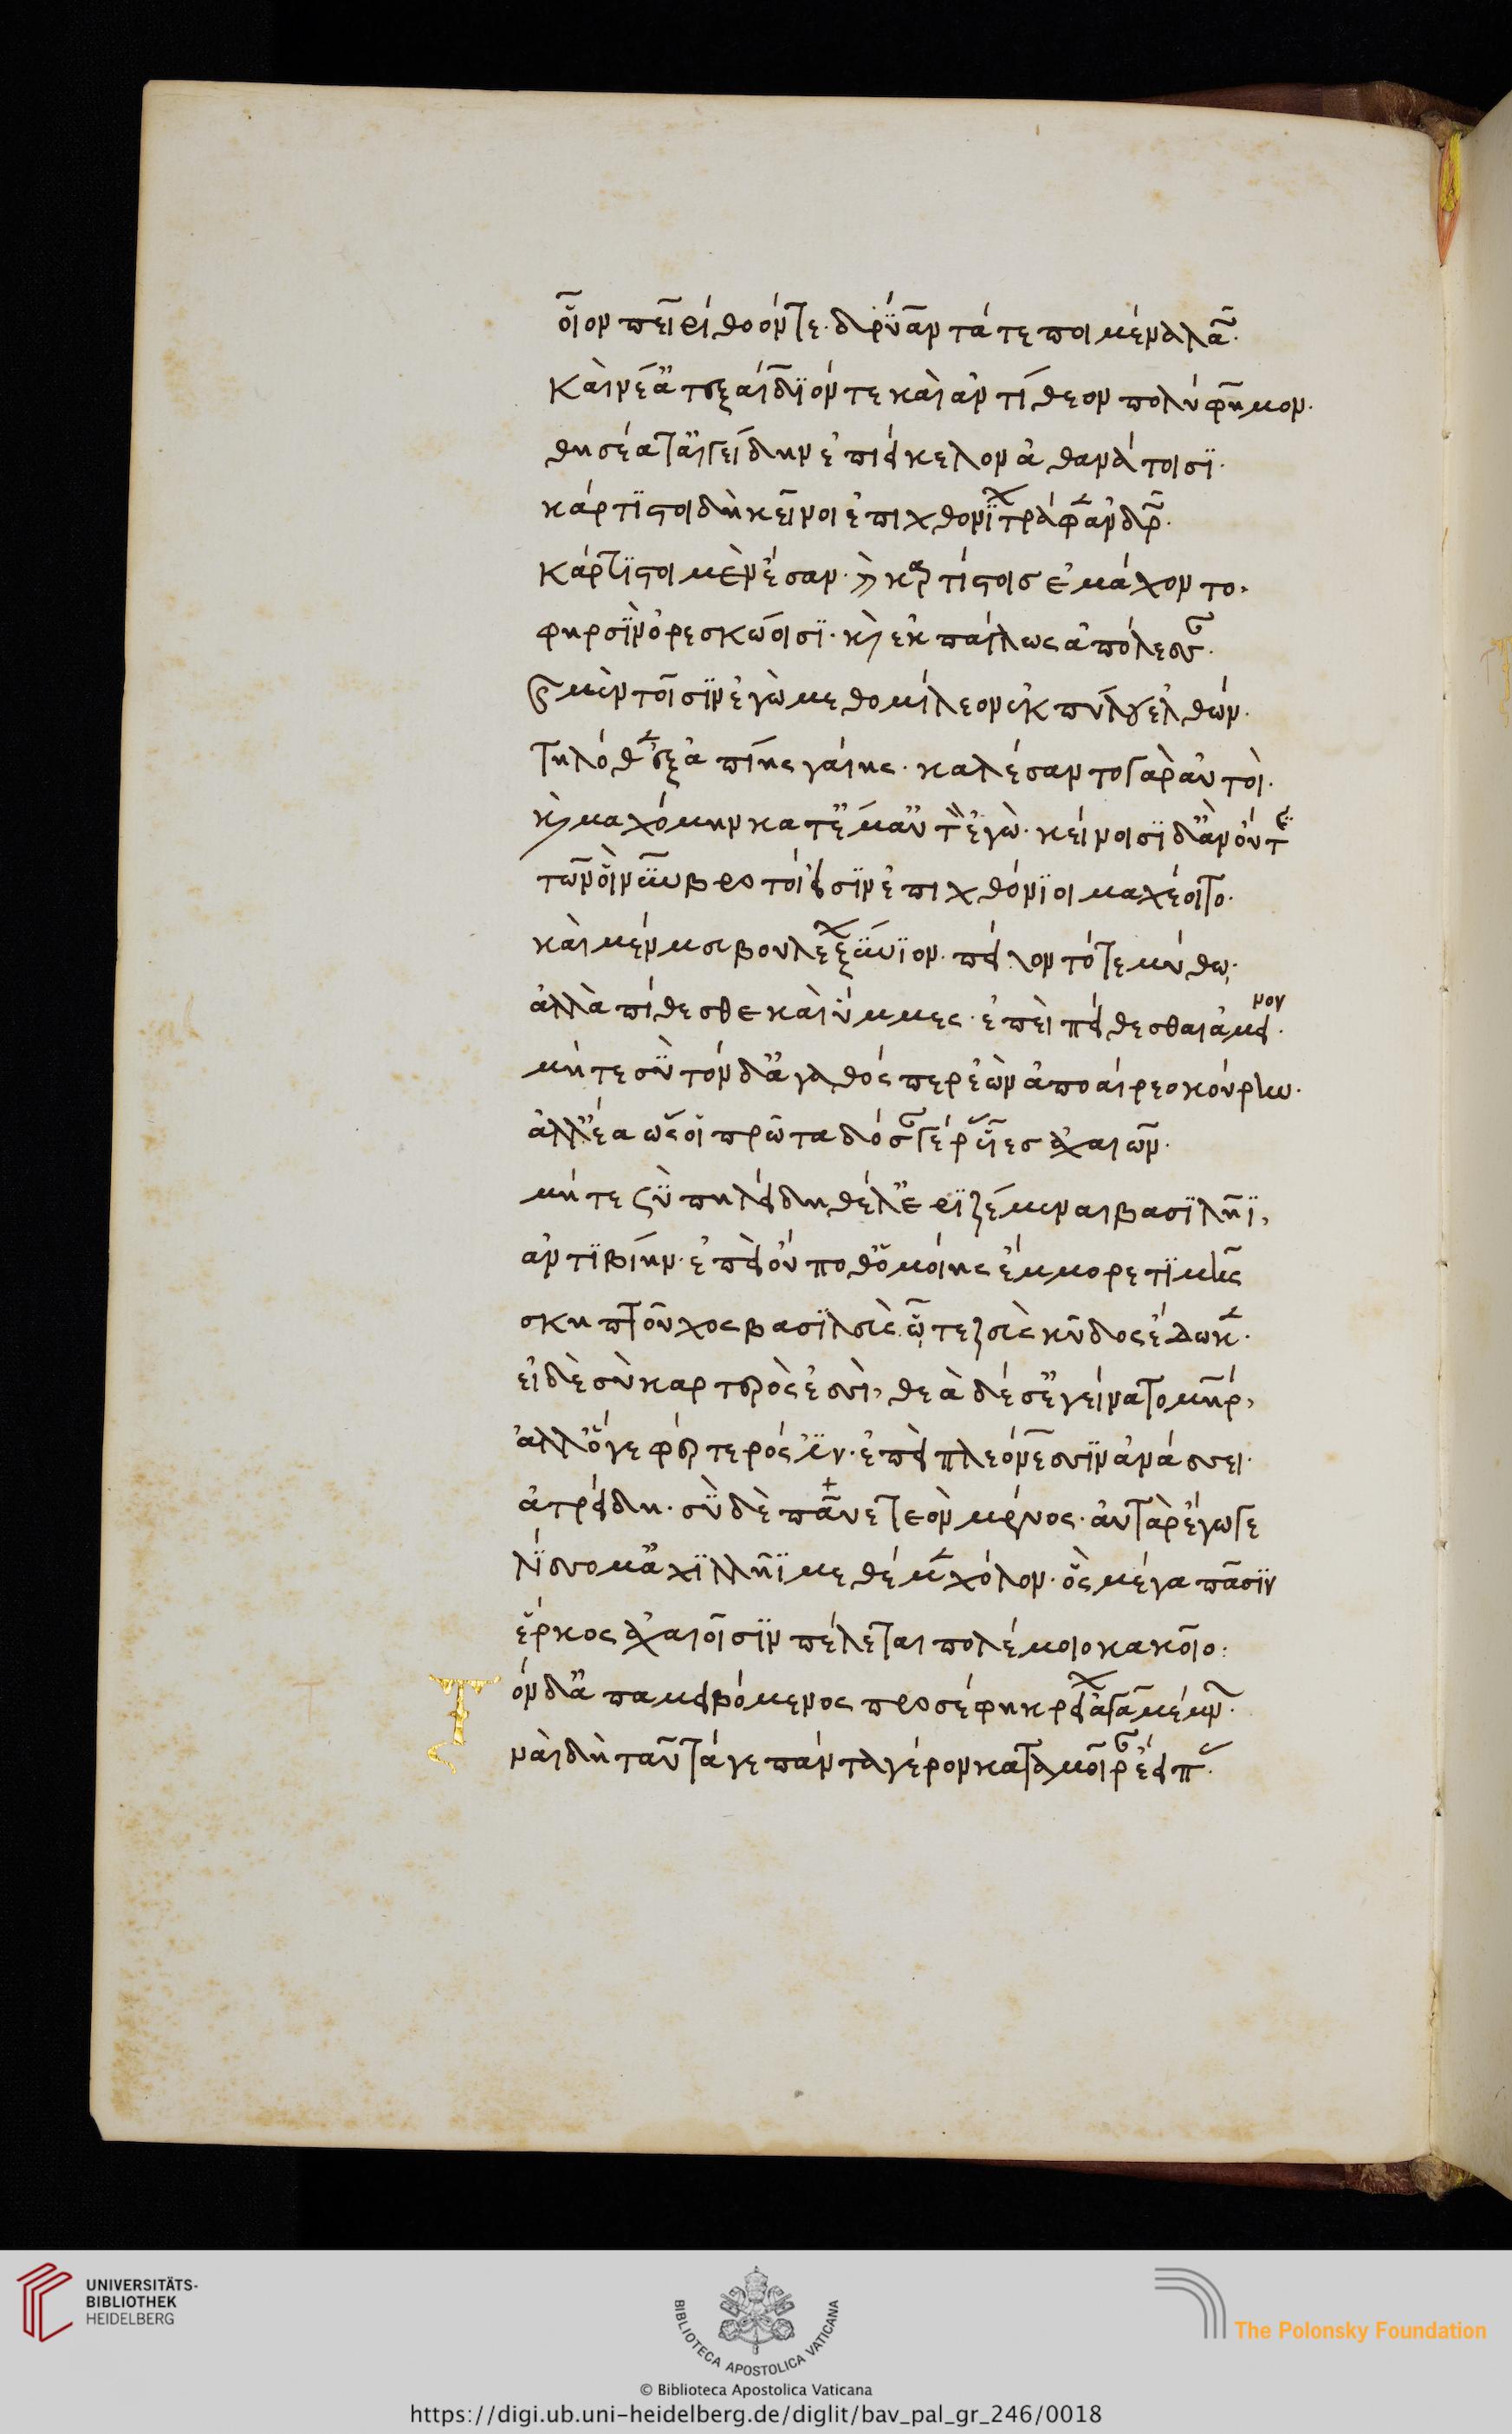 οἷον πειρίθοόν τε δρύαντά τε ποιμένα λαῶν·
καινέα τ' ἐξάδιόν τε καὶ ἀντίθεον πολύφημον·
θησέα τ' αἰγείδην ἐπιείκελον ἀθανάτοισι·
κάρτιστοι δὴ κεῖνοι ἐπιχθονίων τράφεν ἀνδρῶν·
κάρτιστοι μὲν ἔσαν· καὶ καρτίστοις ἐμάχοντο,
φηρσὶν ὀρεσκώοισι· καὶ ἐκπάγλως ἀπόλεσσαν·
καὶ μὲν τοῖσιν ἐγὼ μεθομίλεον ἐκ πύλου ἐλθών·
τηλόθεν ἐξ ἀπίης γαίης· καλέσαντο γὰρ αὐτοί·
καὶ μαχόμην κατ' ἔμ' αὐτὸν ἐγώ· κείνοισι δ' ἂν οὔτις
τῶν οἳ νῦν βροτοί εἰσιν ἐπιχθόνιοι μαχέοιτο·
καὶ μέν μευ βουλέων ξύνιον· πείθοντό τε μύθῳ·
ἀλλὰ πίθεσθε καὶ ὔμμες· ἐπεὶ πείθεσθαι ἄμεινον·
μήτε σὺ τόνδ' ἀγαθός περ ἐὼν ἀποαίρεο κούρην·
ἀλλ' ἔα ὥς οἱ πρῶτα δόσαν γέρας υἷες ἀχαιῶν·
μήτε σὺ πηλείδη θέλ' ἐριζέμεναι βασιλῆϊ,
ἀντιβίην· ἐπεὶ οὔποθ' ὁμοίης ἔμμορε τιμῆς
σκηπτοῦχος βασιλεὺς ᾧ τε ζεὺς κῦδος ἔδωκεν·
εἰ δὲ σὺ καρτερός ἐσσι, θεὰ δέ σ' ἐγείνατο μήτηρ,
ἀλλ' ὅγε φέρτερός ἐστιν· ἐπεὶ πλεόνεσσιν ἀνάσσει·
ἀτρείδη· σὺ δὲ παῦε τεὸν μένος· αὐτὰρ ἔγωγε
λίσσομ' ἀχιλλῆϊ μεθέμεν χόλον· ὃς μέγα πᾶσιν
ἕρκος ἀχαιοῖσιν πέλεται πολέμοιο κακοῖο:
Τὸν δ' ἀπαμειβόμενος προσέφη κρείων ἀγαμέμνων·
ναὶ δὴ ταῦτά γε πάντα γέρον κατὰ μοῖραν ἔειπες·
UNIVERSITÄTS-
BIBLIOTHEK
HEIDELBERG
BIBLIOTECA APOSTOLICA VATICANA
The Polonsky Foundation
© Biblioteca Apostolica Vaticana
https://digi.ub.uni-heidelberg.de/diglit/bav_pal_gr_246/0018